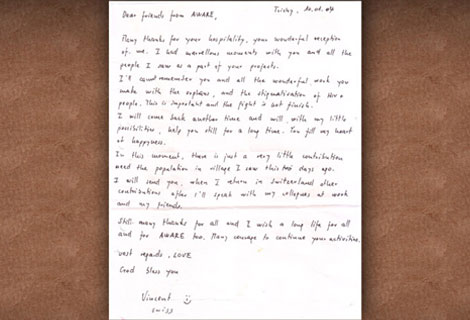 Dear friends from AWARE,
Many thanks for your hospitality, your wonderful reception
of me. I had marvellous moments with you and all the
people I saw as a part of your projects.
I'll remember you and all the wonderful work you
make with the orphans, and the stigmatisation of HIV+
people. This is important and the fight is not finish.
I will come back another time and will, with my little
possibilities, help you still for a long time. You fill my heart
of happyness.
In this moment, there is just a very little contribution
need the population in village I saw this two days ago.
I will send you, when I return in Switzerland other
contributions after I'll speak with my collegues at work
and my friends.
Still many thanks for all and I wish a long life for all
and for AWARE too. Many courage to continue your activities.
best regards, LOVE
God bless you
Vincent
swiss